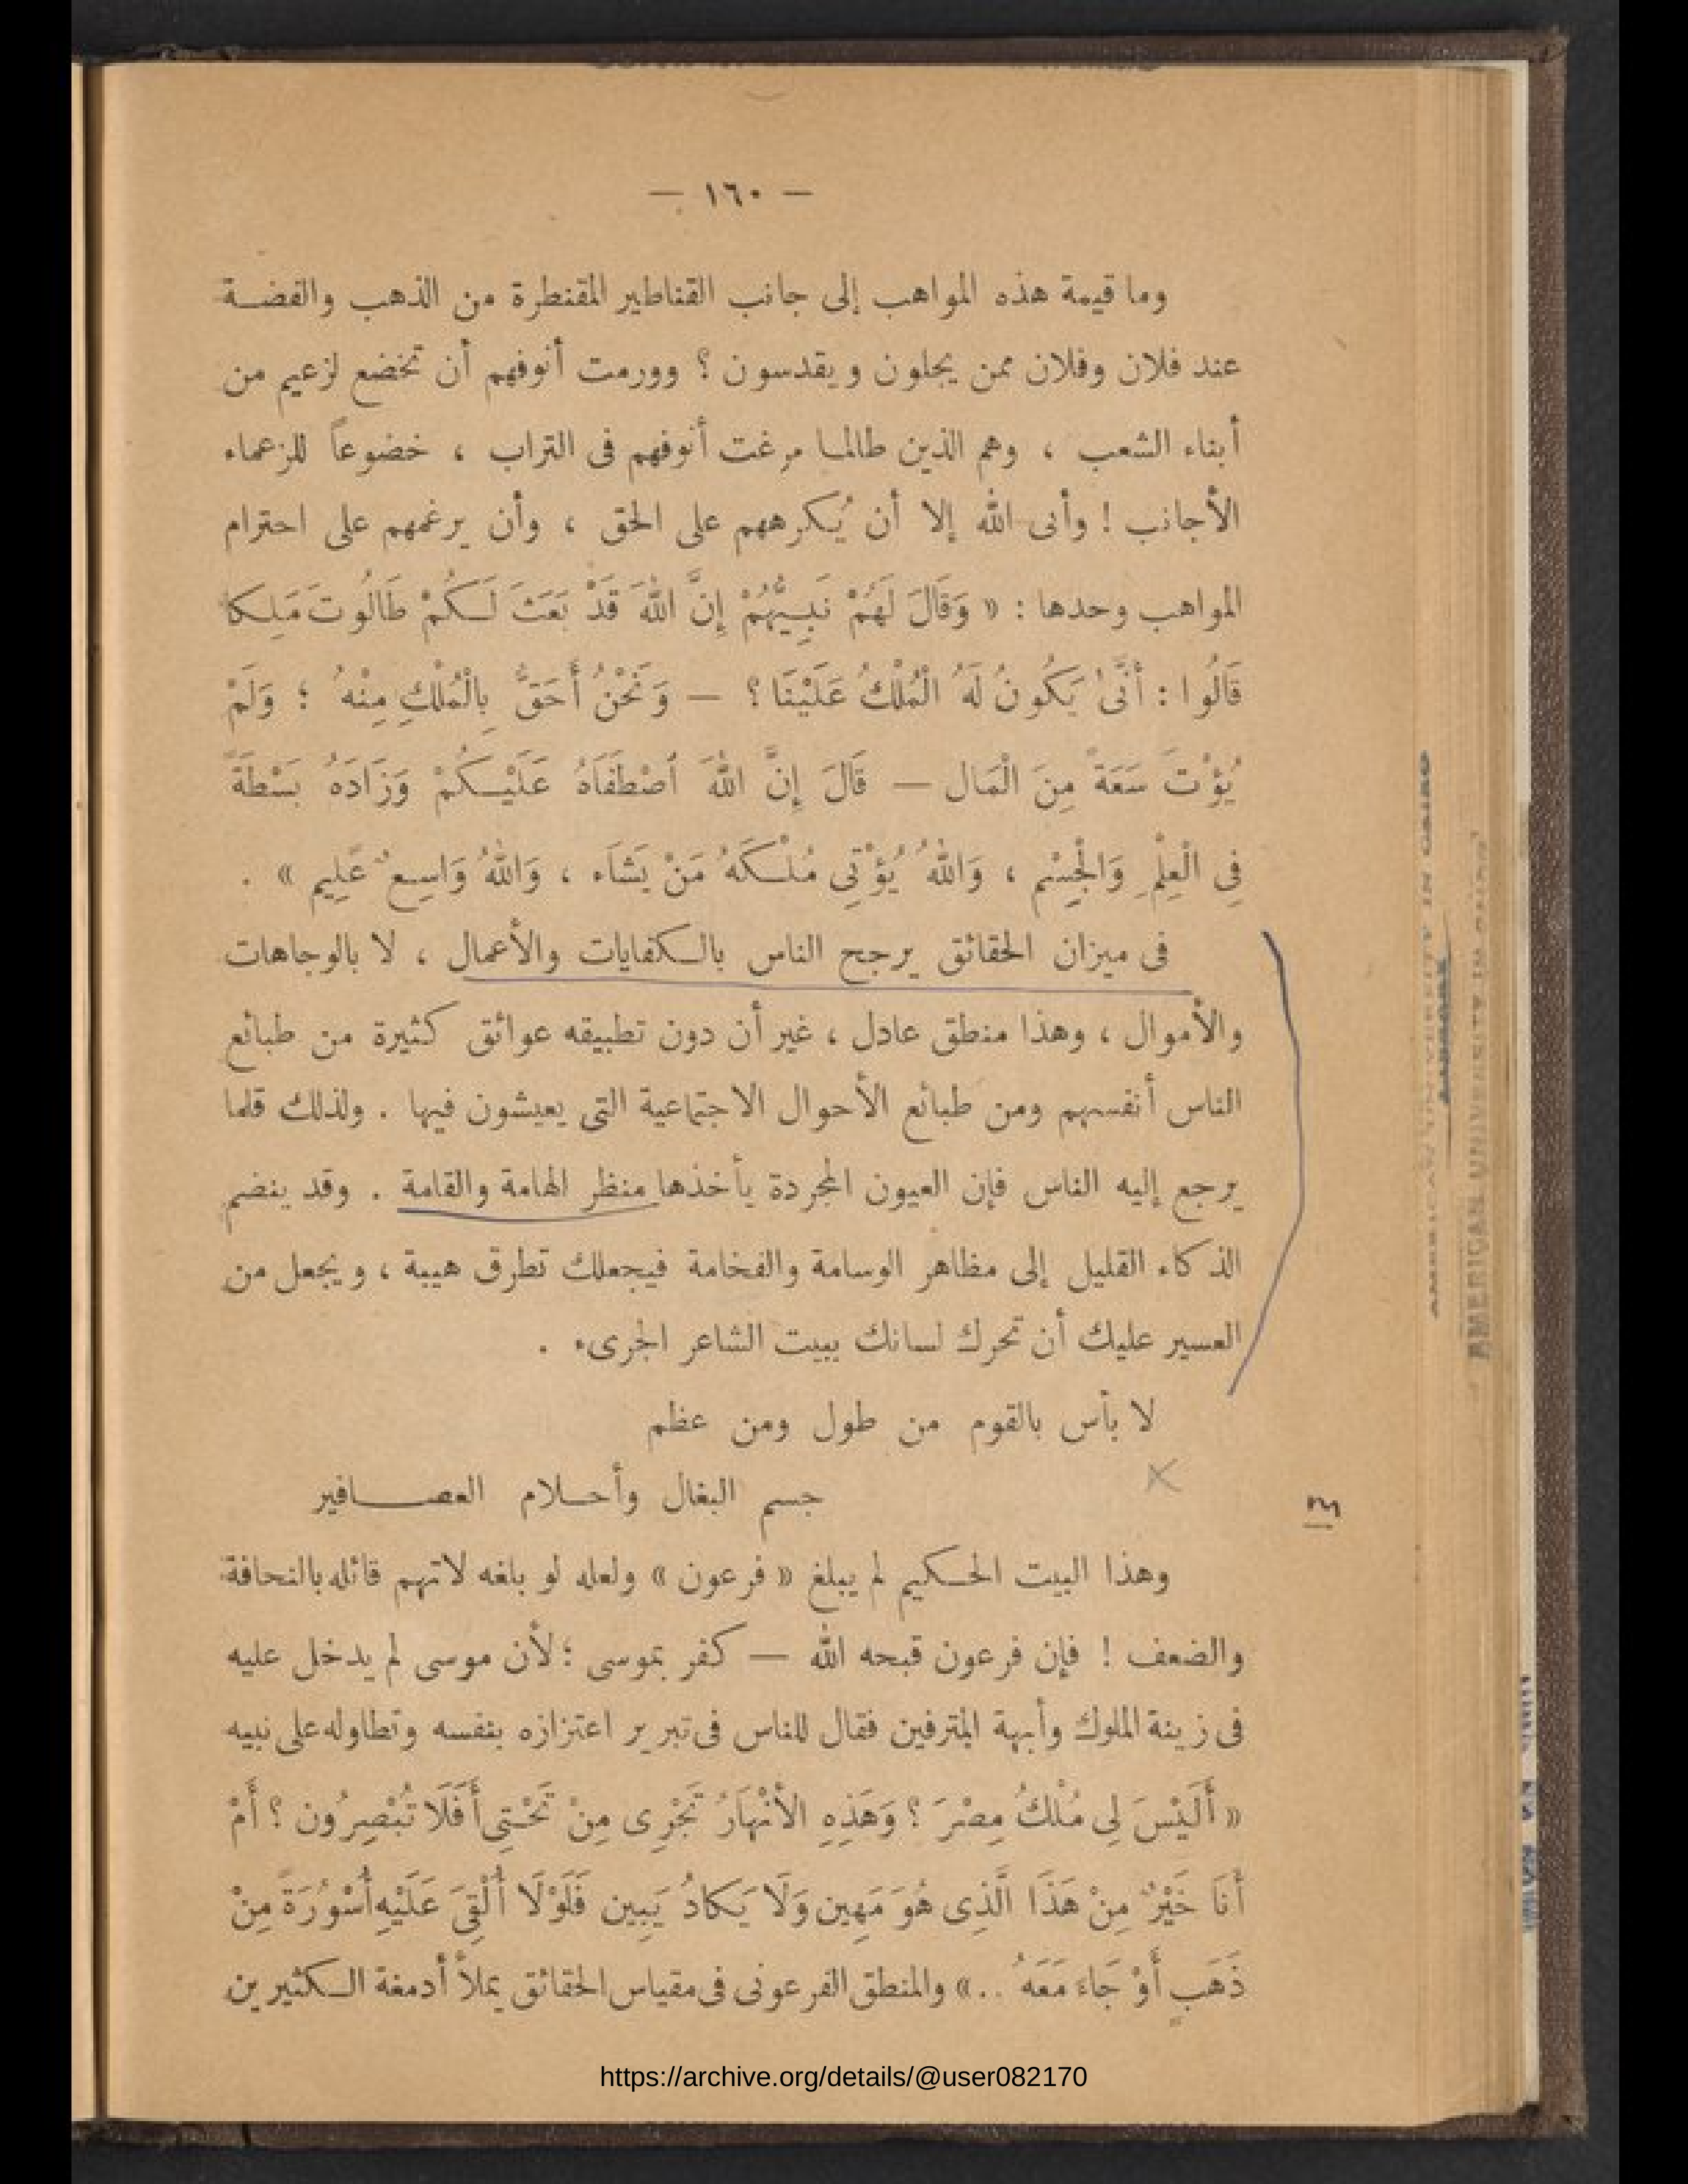 — ١٦٠ —
وما قيمة هذه المواهب إلى جانب القناطير المقنطرة من الذهب والفضـة
عند فلان وفلان ممن يجلون ويقدسون ؟ وورمت أنوفهم أن تخضع لزعيم من
أبناء الشعب ، وهم الذين طالما مرغت أنوفهم فى التراب ، خضوعاً للزعماء
الأجانب ! وأبى الله إلا أن يُكرههم على الحق ، وأن يرغمهم على احترام
المواهب وحدها : « وَقَالَ لَهُمْ نَبِيُّهُمْ إِنَّ اللهَ قَدْ بَعَثَ لَكُمْ طَالُوتَ مَلِكا
قَالُوا : أَنَّىٰ يَكُونُ لَهُ الْمُلْكُ عَلَيْنَا ؟ — وَنَحْنُ أَحَقُّ بِالْمُلْكِ مِنْهُ ؛ وَلَمْ
يُؤْتَ سَعَةً مِنَ الْمَال — قَالَ إِنَّ اللهَ اصْطَفَاهُ عَلَيْكُمْ وَزَادَهُ بَسْطَةً
فِى الْعِلْمِ وَالْجِسْمِ ، وَاللهُ يُؤْتِى مُلْكَهُ مَنْ يَشَاء ، وَاللهُ وَاسِعٌ عَلِيم » .
فى ميزان الحقائق يرجح الناس بالكفايات والأعمال ، لا بالوجاهات
والأموال ، وهذا منطق عادل ، غير أن دون تطبيقه عوائق كثيرة من طبائع
الناس أنفسهم ومن طبائع الأحوال الاجتماعية التى يعيشون فيها . ولذلك قلما
يرجع إليه الناس فإن العيون المجردة يأخذها منظر الهامة والقامة . وقد ينضم
الذكاء القليل إلى مظاهر الوسامة والفخامة فيجعلك تطرق هيبة ، ويجعل من
العسير عليك أن تحرك لسانك ببيت الشاعر الجرىء .
لا بأس بالقوم من طول ومن عظم
جسم البغال وأحـلام العصـافير
وهذا البيت الحكيم لم يبلغ « فرعون » ولعله لو بلغه لاتهم قائله بالنحافة
والضعف ! فإن فرعون قبحه الله — كفر بموسى ؛ لأن موسى لم يدخل عليه
فى زينة الملوك وأبهة المترفين فقال للناس فى تبرير اعتزازه بنفسه وتطاوله على نبيه
« أَلَيْسَ لِى مُلْكُ مِصْرَ ؟ وَهَذِهِ الأنْهَارُ تَجْرِى مِنْ تَحْتِى أَفَلَا تُبْصِرُون ؟ أَمْ
أَنَا خَيْرٌ مِنْ هَذَا الَّذِى هُوَ مَهِين وَلَا يَكادُ يَبِين فَلَوْلَا أُلْقِىَ عَلَيْهِ أَسْوُرَةٌ مِنْ
ذَهَبٍ أَوْ جَاءَ مَعَهُ .. » والمنطق الفرعونى فى مقياس الحقائق يملأ أدمغة الكثيرين
AMERICAN UNIVERSITY IN CAIRO
LIBRARY
AMERICAN UNIVERSITY IN CAIRO
https://archive.org/details/@user082170